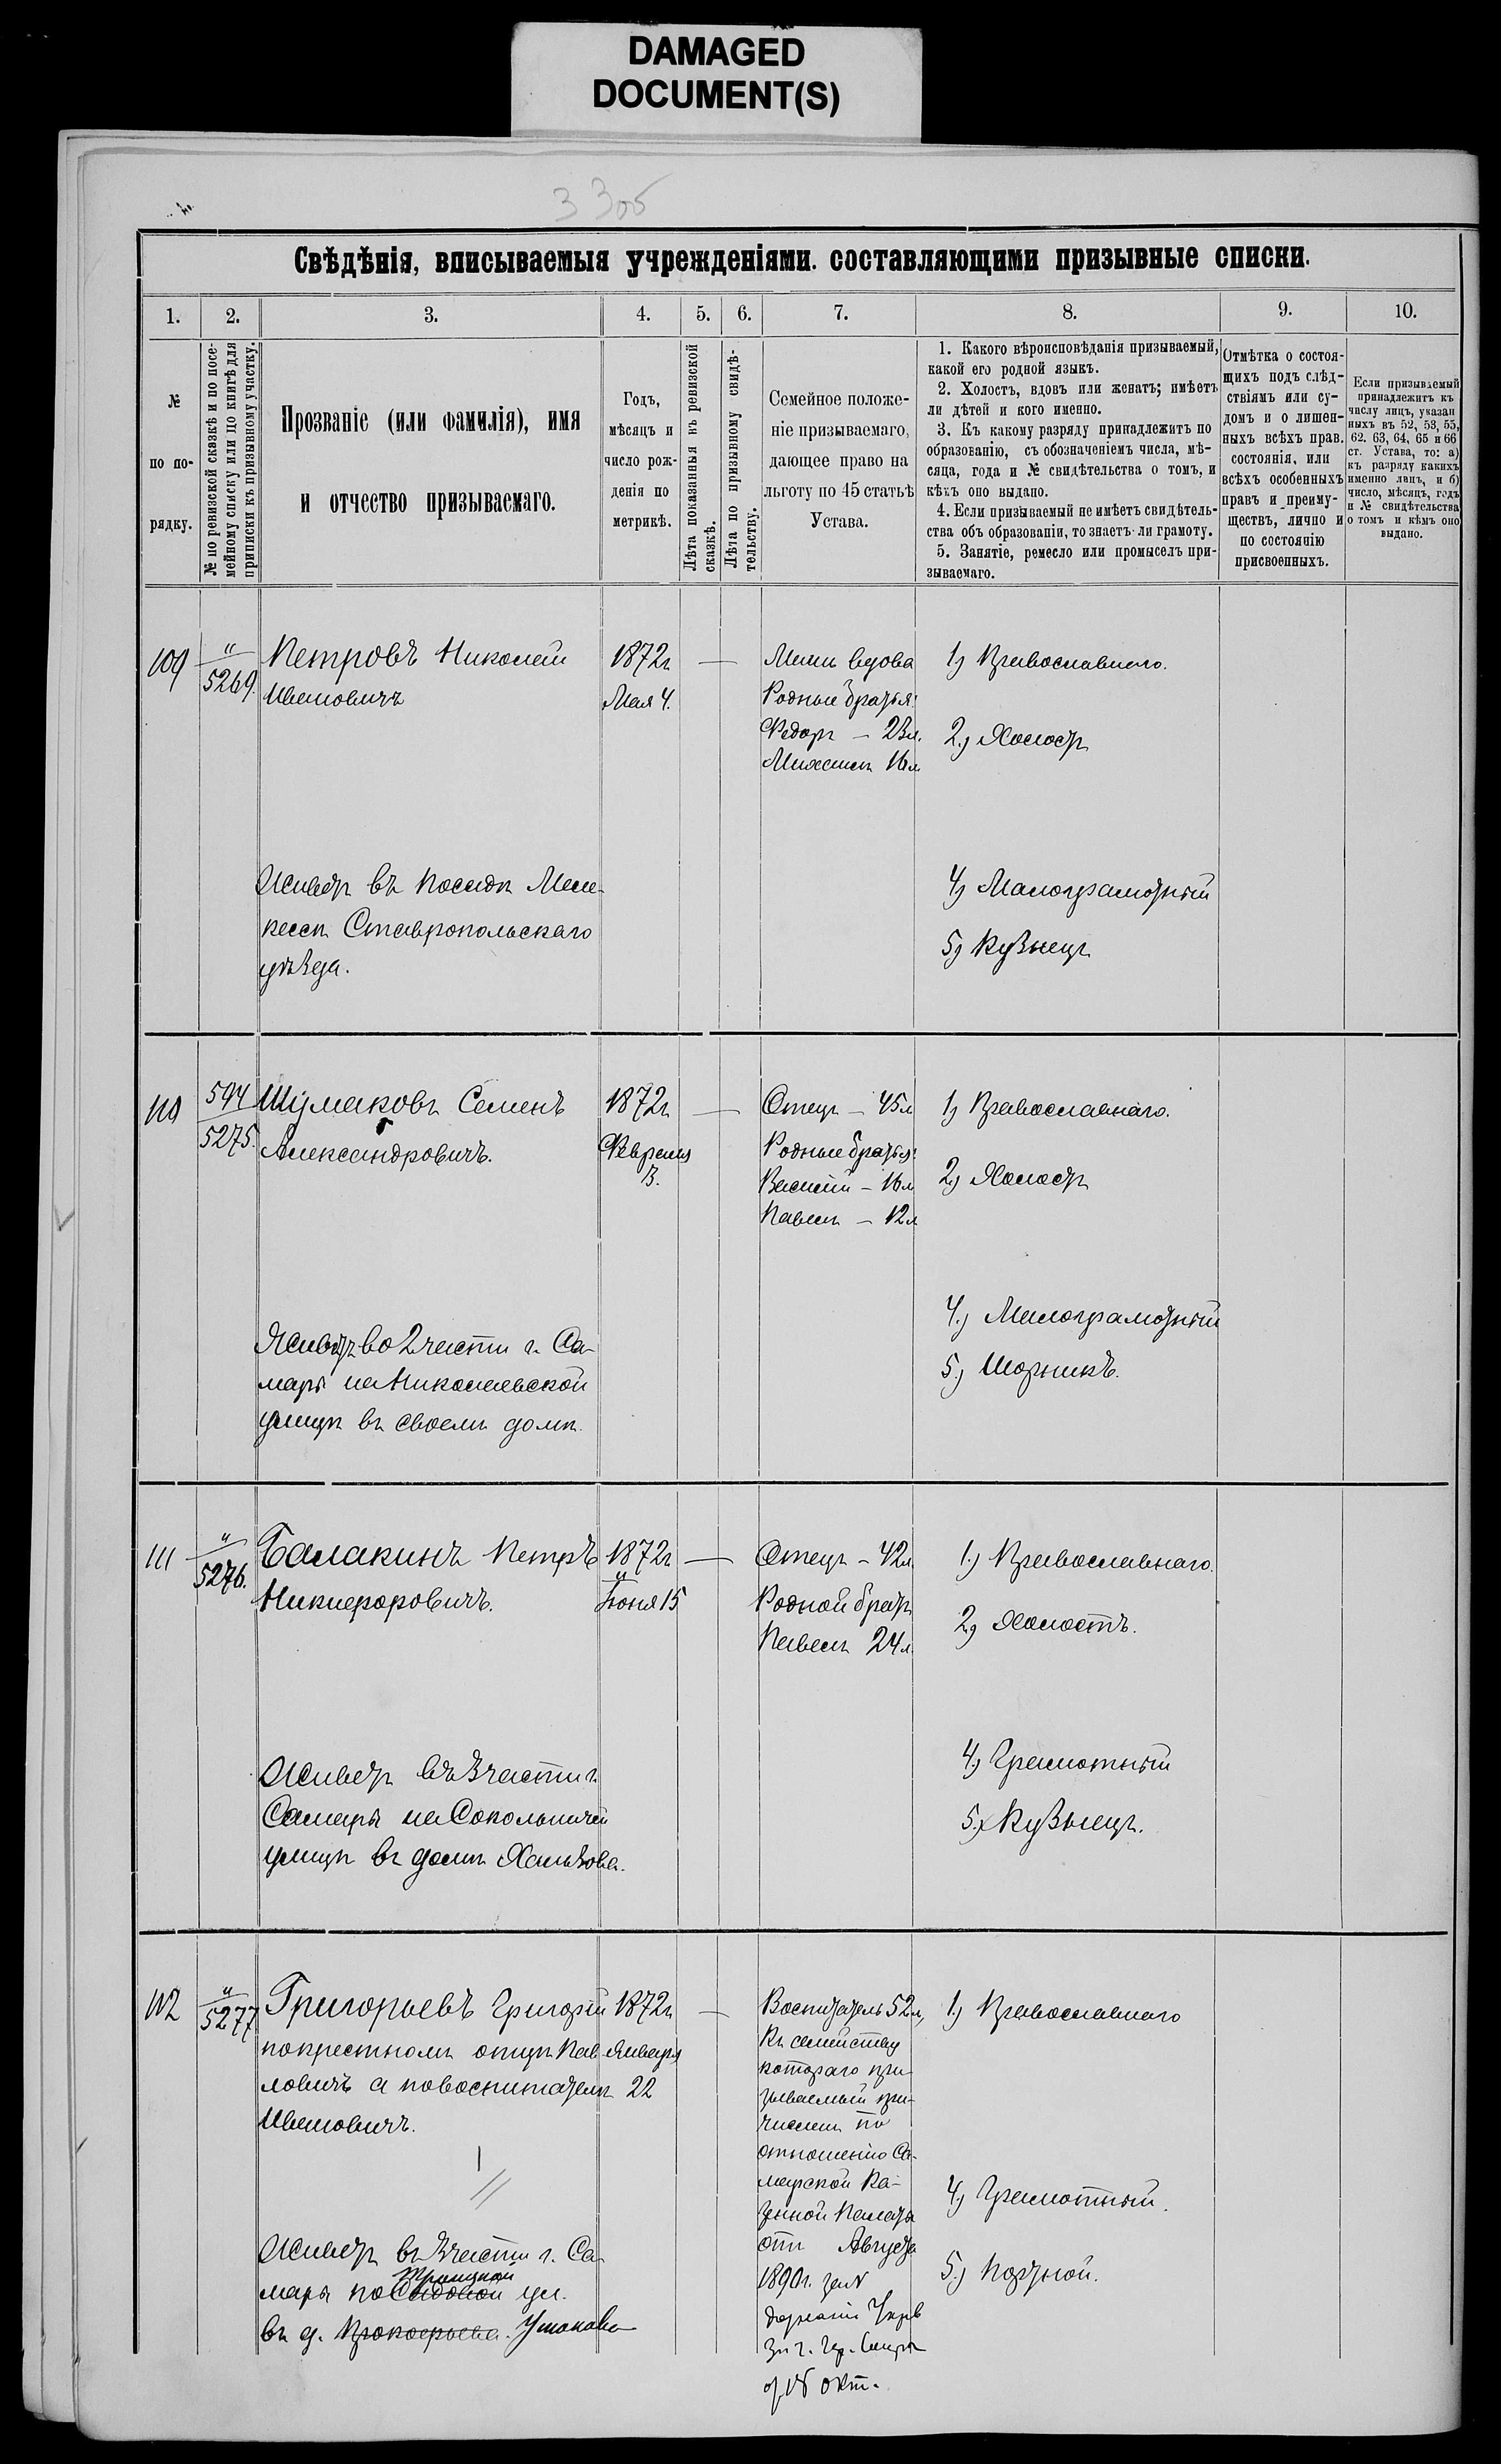 DAMAGED
DOCUMENT(S)
3 3об
Свѣдѣнія, вписываемыя учрежденіями. составляющими призывные списки.
1. 2. 3. 4. 5. 6. 7. 8. 9. 10.
№
по по-
рядку.
№ по ревизской сказкѣ и по посе-
мейному списку или по книгѣ для
приписки къ призывному участку.
Прозваніе (или фамилія), имя
и отчество призываемаго.
Годъ,
мѣсяцъ и
число рож-
денія по
метрикѣ.
Лѣта показанныя къ ревизской
сказкѣ.
Лѣта по призывному свидѣ-
тельству.
Семейное положе-
ніе призываемаго,
дающее право на
льготу по 45 статьѣ
Устава.
1. Какого вѣроисповѣданія призываемый,
какой его родной языкъ.
2. Холостъ, вдовъ или женатъ; имѣетъ
ли дѣтей и кого именно.
3. Къ какому разряду принадлежитъ по
образованію, съ обозначеніемъ числа, мѣ-
сяца, года и № свидѣтельства о томъ, и
кѣмъ оно выдано.
4. Если призываемый не имѣетъ свидѣтель-
ства объ образованіи, то знаетъ-ли грамоту.
5. Занятіе, ремесло или промыселъ при-
зываемаго.
Отмѣтка о состоя-
щихъ подъ слѣд-
ствіямъ или су-
домъ и о лишен-
ныхъ всѣхъ прав.
состоянія, или
всѣхъ особенныхъ
правъ и преиму-
ществъ, лично и
по состоянію
присвоенныхъ.
Если призываемый
принадлежитъ къ
числу лицъ, указан
ныхъ въ 52, 53, 55,
62. 63, 64, 65 и 66
ст. Устава, то: а)
къ разряду какихъ
именно лицъ, и б)
число, мѣсяцъ, годъ
и № свидѣтельства
о томъ и кѣмъ оно
выдано.
109
"
5269.
Петровъ Николай
Ивановичъ
Живетъ въ посадѣ Меле-
кессѣ Ставропольскаго
уѣзда.
1872г
Мая 4.
—
Мать вдова
Родные братья:
Федоръ — 23л.
Михаилъ 16л
1) Православнаго.
2.) Холостъ
4) Малограмотный
5) Кузнецъ
110
594
5275.
Шумаковъ Семенъ
Александровичъ.
Живетъ во 2 части г. Са-
мары на Николаевской
улицѣ въ своемъ домѣ.
1872г
Февраля
3.
—
Отецъ — 45л
Родные братья:
Василій — 16л
Павелъ — 12л
1) Православнаго.
2) Холостъ
4.) Малограмотный
5.) Шорникъ.
111
"
5276.
Балакинъ Петръ
Никифоровичъ.
Живетъ въ 3 части г.
Самары на Сокольничей
улицѣ въ домѣ Халезова.
1872г
Іюня 15
—
Отецъ — 42л
Родной братъ
Павелъ 24л.
1.) Православнаго.
2) Холостъ.
4) Грамотный
5.) Кузнецъ.
112
"
5277
Григорьевъ Григорій
по крестному отцу Пав
ловичъ а по воспитателю
Ивановичъ.
Живетъ въ 3 части г. Са-
Троицкой
мары по Садовой ул.
въ д. Прокофьева. Ушакова
1872г
Января
22
—
Воспитатель 52л,
къ семейству
котораго при-
зываемый при-
численъ по
отношенію Са-
марской Ка-
зенной Палаты
отъ Августа
1890г. за №
1.) Православнаго
4) Грамотный.
5.) Портной.